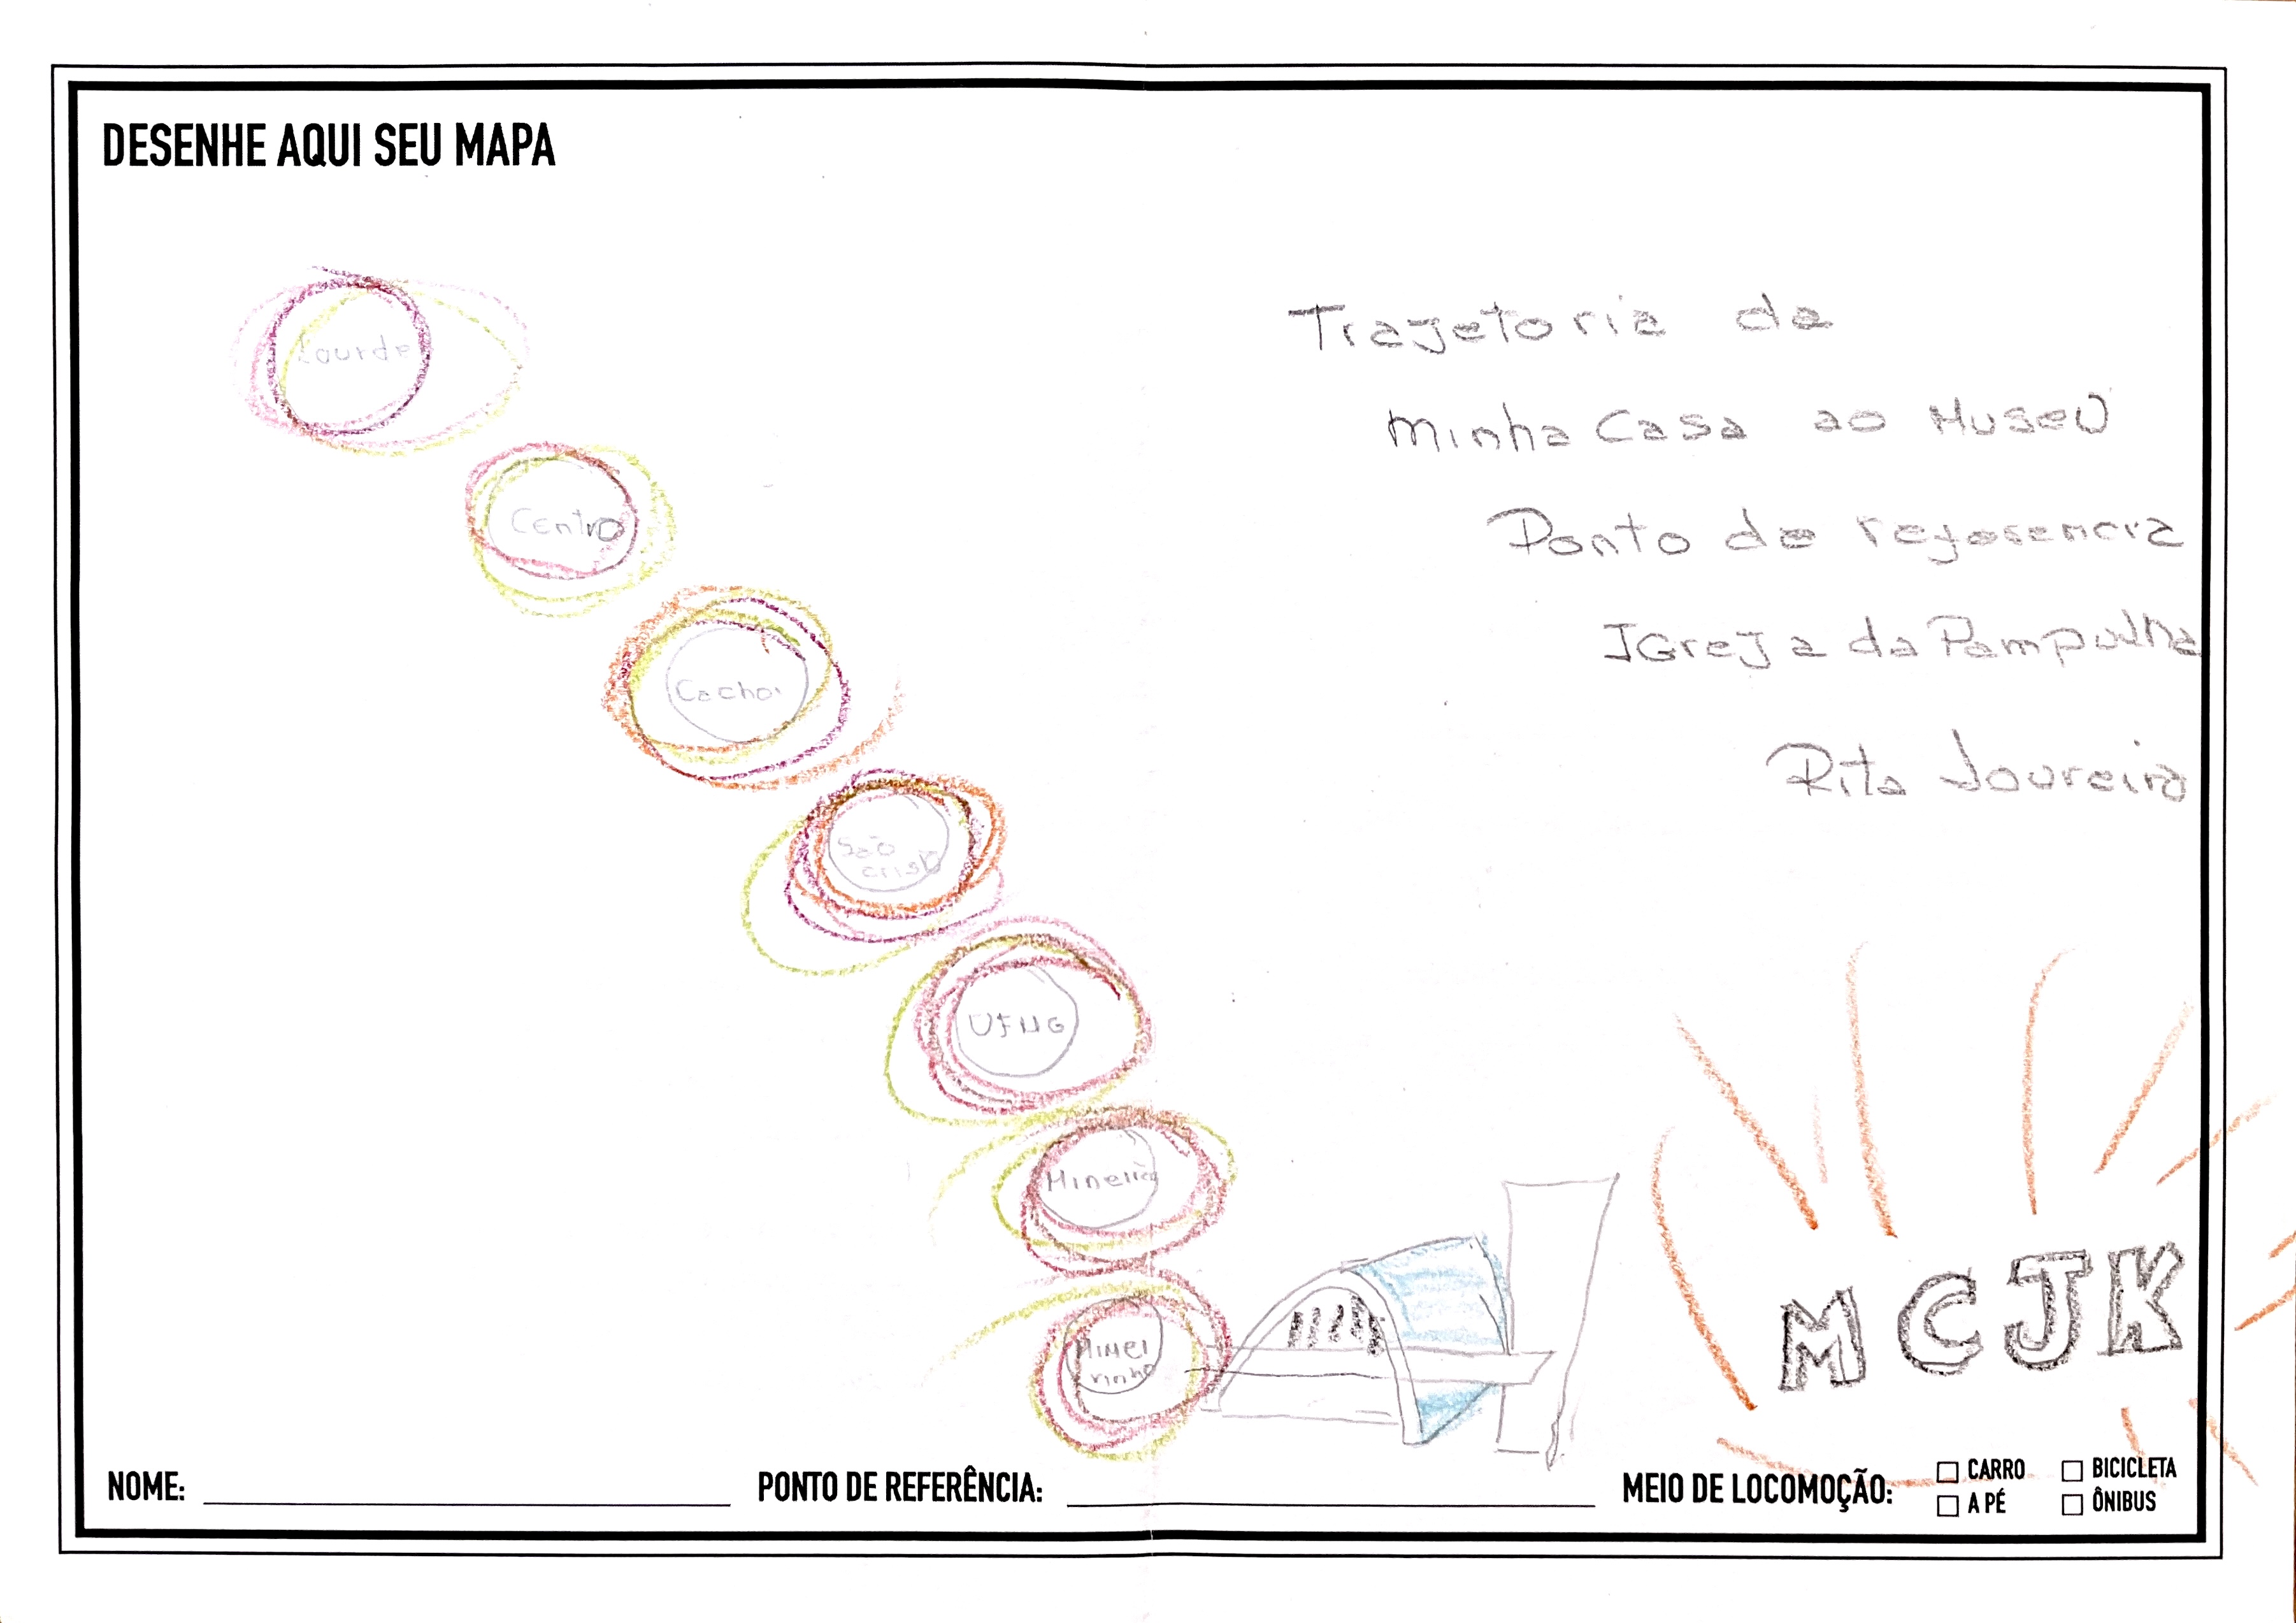 DESENHE AQUI SEU MAPA
Lourde
Centro
Cachoi
São
Cristo
UFMG
Mineirão
Minei
rinho
Trajetoria da
Minha Casa ao Museu
Ponto de referencia
Igreja da Pampulha
Rita Loureiro
MCJK
NOME:
PONTO DE REFERÊNCIA:
MEIO DE LOCOMOÇÃO:
CARRO
BICICLETA
A PÉ
ÔNIBUS